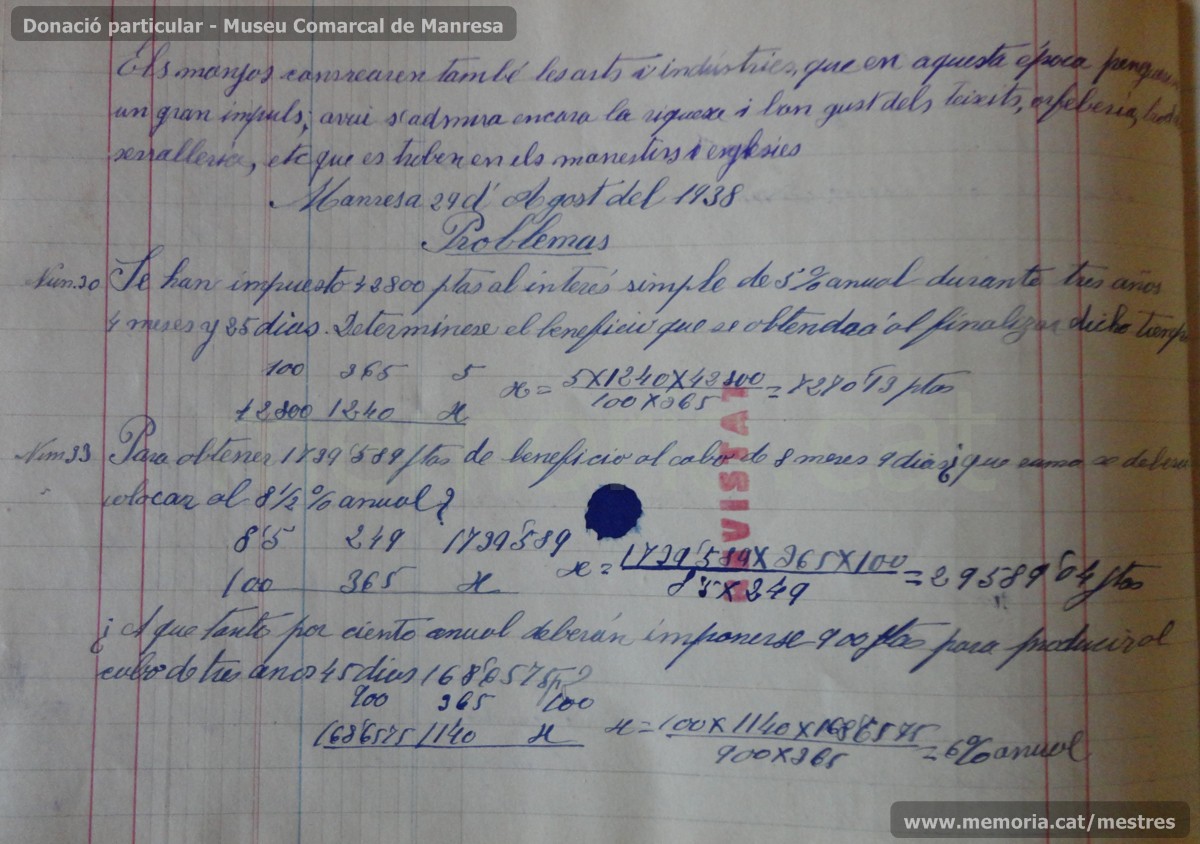 Donació particular - Museu Comarcal de Manresa
Els monjos conrearen també les arts i indústries, que en aquesta época
un gran impuls; avui s'admira encara la riquesa i bon gust dels teixits, orfebreria,
serralleria, etc que es troben en els monestirs i esglesies
Manresa 29 d' Agost del 1938
Problemas
Núm. 30 Se han impuesto 42800 ptas al interés simple de 5% anual durante tres años
4 meses y 25 dias. Determínese el benefici que se obtendrá al finalizar dicho tiempo
100 365 5
42800 1240 x
x = 5 x 1240 x 42800 / 100 x 365 = 7270'13 ptas
Núm 33 Para obtener 1739'589 ptas de beneficio al cabo de 8 meses 9 dias ¿que suma se deberá
colocar al 8 1/2 % anual?
8'5 249 1739'589
100 365 x
x = 1739'589 x 365 x 100 / 8'5 x 249 = 29589'04 ptas
¿A que tanto por ciento anual deberán imponerse 900 ptas para producir al
cabo de tres anos 45 dias 168'6575 ?
900 365 100
168'6575 1140 x
x = 100 x 1140 x 168'6575 / 900 x 365 = 6% anual
REVISTAT
www.memoria.cat/mestres